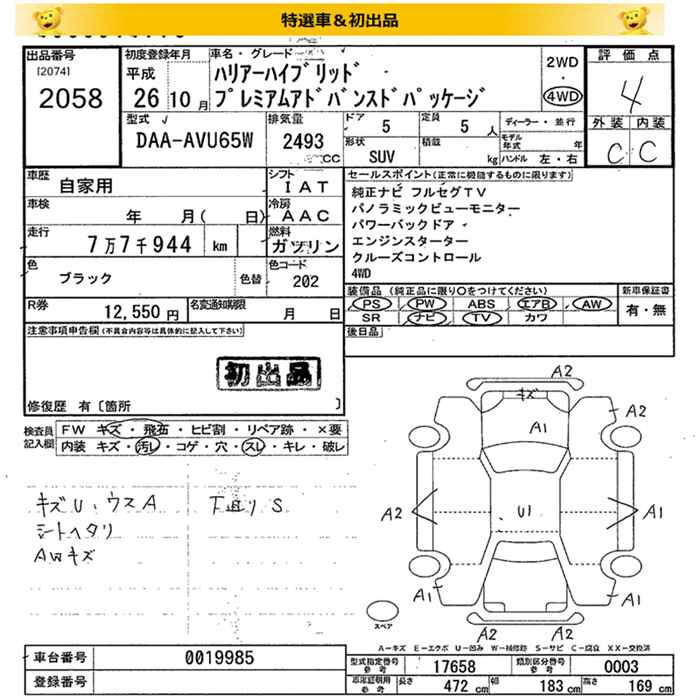 特選車＆初出品
出品番号
[2074]
2058
初度登録年月
平成
26年10月
車名・グレード
ハリアーハイブリッド
プレミアムアドバンスドパッケージ
2WD
・
4WD
評価点
4
外装 内装
C C
型式
DAA-AVU65W
排気量
2493
CC
ドア
5
定員
5人
形状
SUV
積載
kg
ディーラー・並行
モデル年式 年
ハンドル 左・右
車歴
自家用
シフト
IAT
車検
年 月( 日)
冷房
AAC
走行
7万7千944 km
燃料
ガソリン
色
ブラック
色替
色コード
202
R券
12,550円
名変通知期限
月 日
セールスポイント(正常に機能するものに限ります)
純正ナビ フルセグTV
パノラミックビューモニター
パワーバックドア
エンジンスターター
クルーズコントロール
4WD
装備品 (純正品に限り○をつけてください)
PS PW ABS エアB AW
SR ナビ TV カワ
新車保証書
有・無
後日品
注意事項申告欄(不具合内容等は具体的に記入して下さい)
初出品
修復歴 有〔箇所 〕
検査員記入欄
FW キズ・飛石・ヒビ割・リペア跡・×要
内装 キズ・汚レ・コゲ・穴・スレ・キレ・破レ
キズU、ウスA
シートヘタリ
AWキズ
下廻り S
A2
キズ
A1
A2
A2
U1
A1
A1
A1
A2
A2
スペア
A-キズ E-エクボ U-凹み W-補修跡 S-サビ C-腐食 XX-交換済
車台番号
0019985
登録番号
型式指定番号
参考
17658
類別区分番号
参考
0003
車庫証明用
参考
長さ
472cm
幅
183cm
高さ
169cm